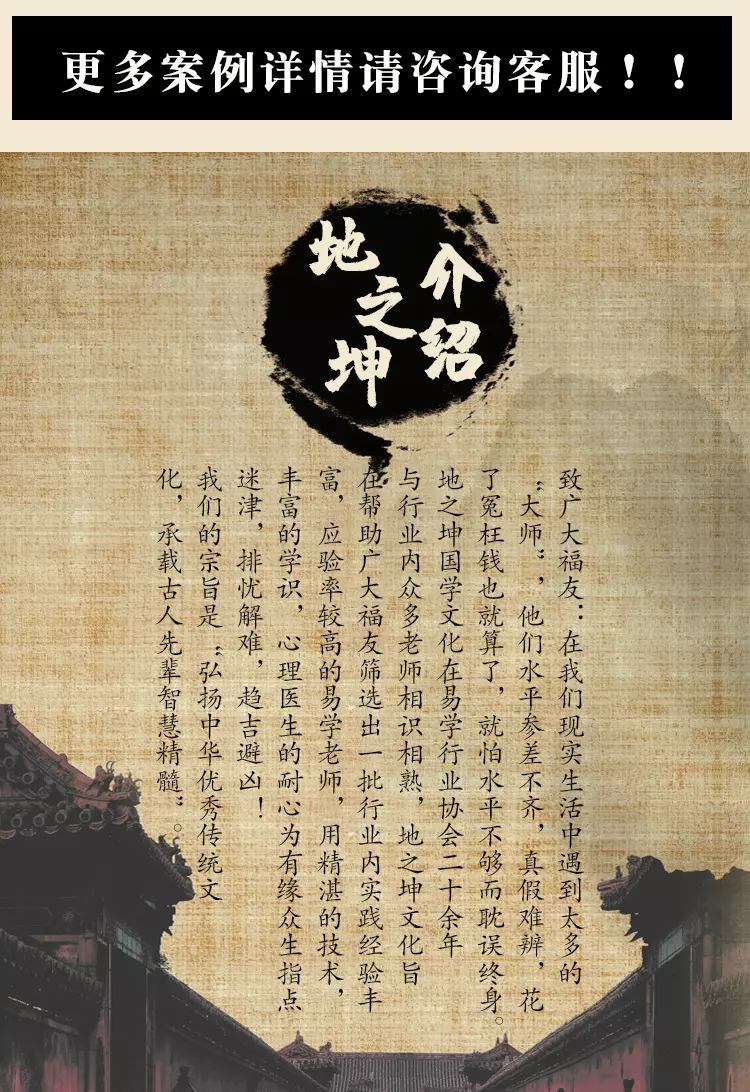 更多案例详情请咨询客服！！
地之坤
介绍
致广大福友：在我们现实生活中遇到太多的
“大师”，他们水平参差不齐，真假难辨，花
了冤枉钱也就算了，就怕水平不够而耽误终身。
地之坤国学文化在易学行业协会二十余年
与行业内众多老师相识相熟，地之坤文化旨
在帮助广大福友筛选出一批行业内实践经验丰
富，应验率较高的易学老师，用精湛的技术，
丰富的学识，心理医生的耐心为有缘众生指点
迷津，排忧解难，趋吉避凶！
我们的宗旨是“弘扬中华优秀传统文
化，承载古人先辈智慧精髓”。